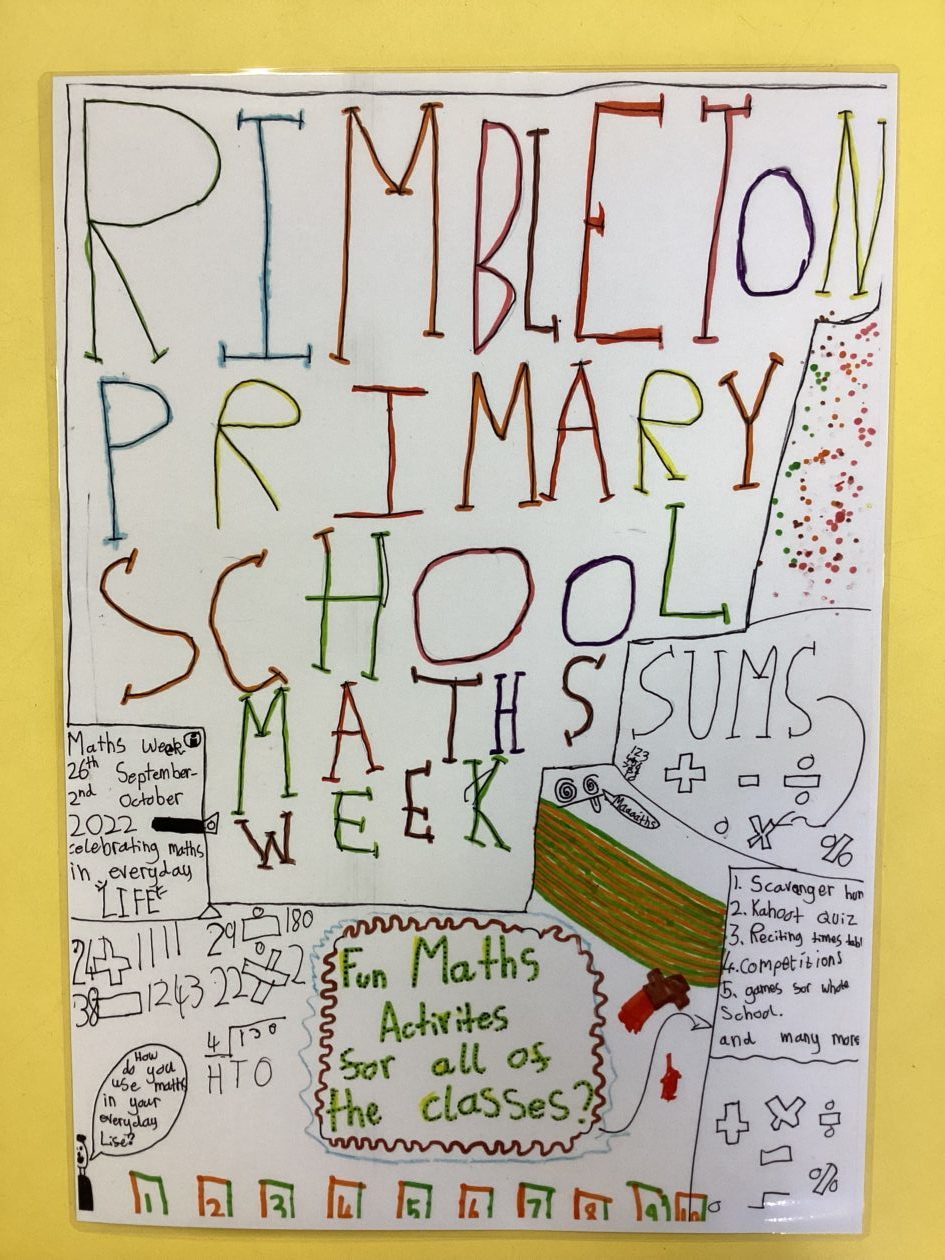 RIMBLETON
PRIMARY
SCHOOL
MATHS
WEEK
SUMS
123
+ - ÷
× %
Maaaths
Maths Week
26th September-
2nd October
2022
celebrating maths
in everyday
"LIFE"
1. Scavenger hun
2. Kahoot Quiz
3. Reciting times tabl
4. Competitions
5. games for whole
School.
and many more
24 + 1111
29 ÷ 180
38 - 1243
22 × 2
4 130
HTO
Fun Maths
Activites
for all of
the classes?
How
do you
use maths
in your
everyday
Life?
+ × ÷
- %
1 2 3 4 5 6 7 8 9 10